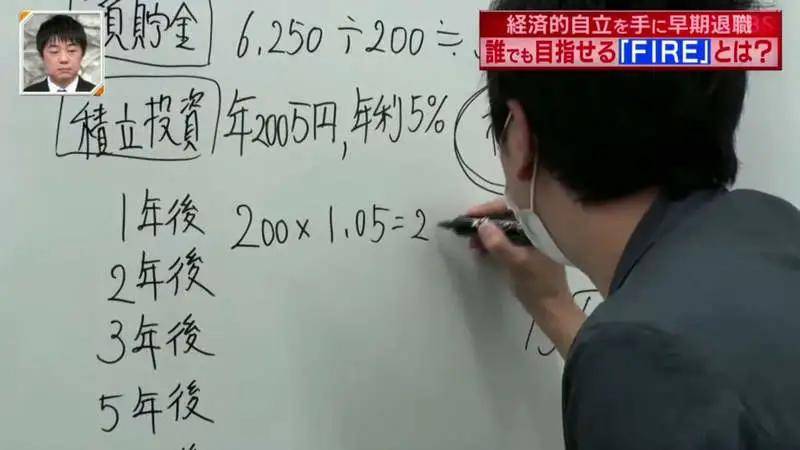 経済的自立を手に早期退職
誰でも目指せる「FIRE」とは?
貯金 6,250÷200≒
積立投資 年200万円,年利5%
1年後 200×1.05=2
2年後
3年後
5年後